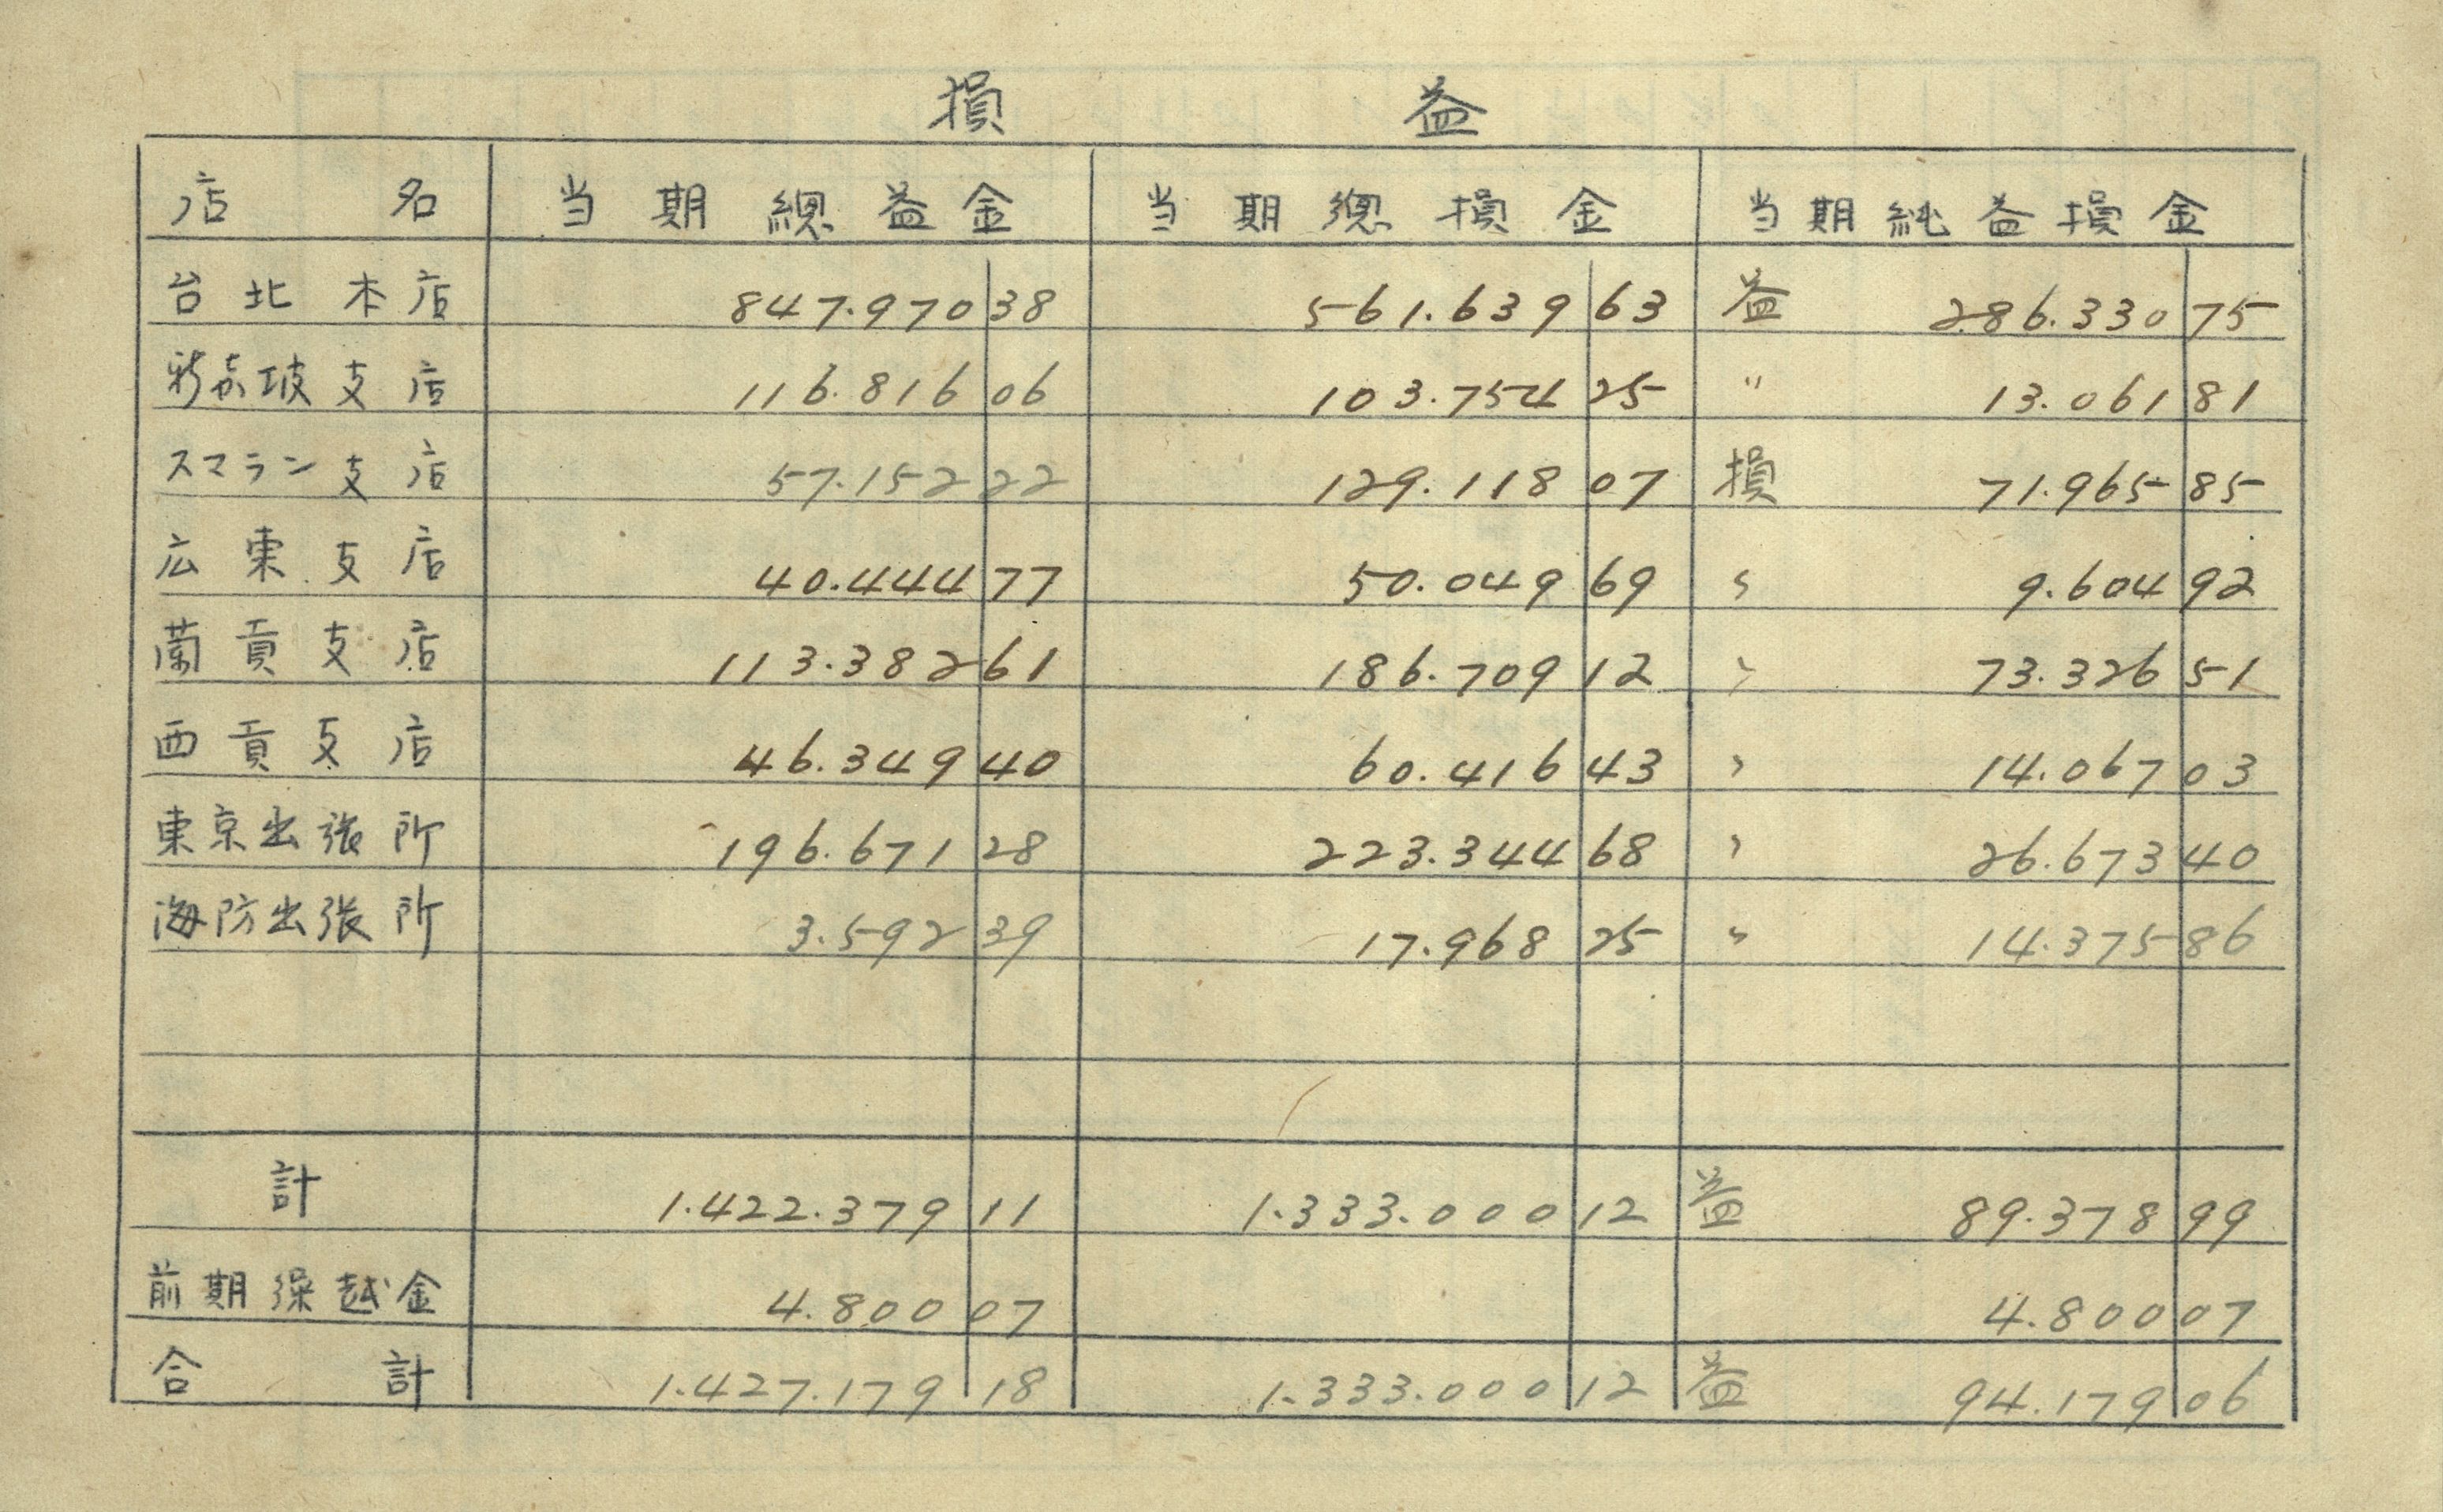 損益
店名 当期總益金 当期總損金 当期純益損金
台北本店 847.970 38 561.639 63 益 286.330 75
新嘉坡支店 116.816 06 103.754 25 〃 13.061 81
スマラン支店 57.152 22 129.118 07 損 71.965 85
広東支店 40.444 77 50.049 69 〃 9.604 92
蘭貢支店 113.382 61 186.709 12 〃 73.326 51
西貢支店 46.349 40 60.416 43 〃 14.067 03
東京出張所 196.671 28 223.344 68 〃 26.673 40
海防出張所 3.592 39 17.968 25 〃 14.375 86
計 1.422.379 11 1.333.000 12 益 89.378 99
前期繰越金 4.800 07 4.800 07
合計 1.427.179 18 1.333.000 12 益 94.179 06